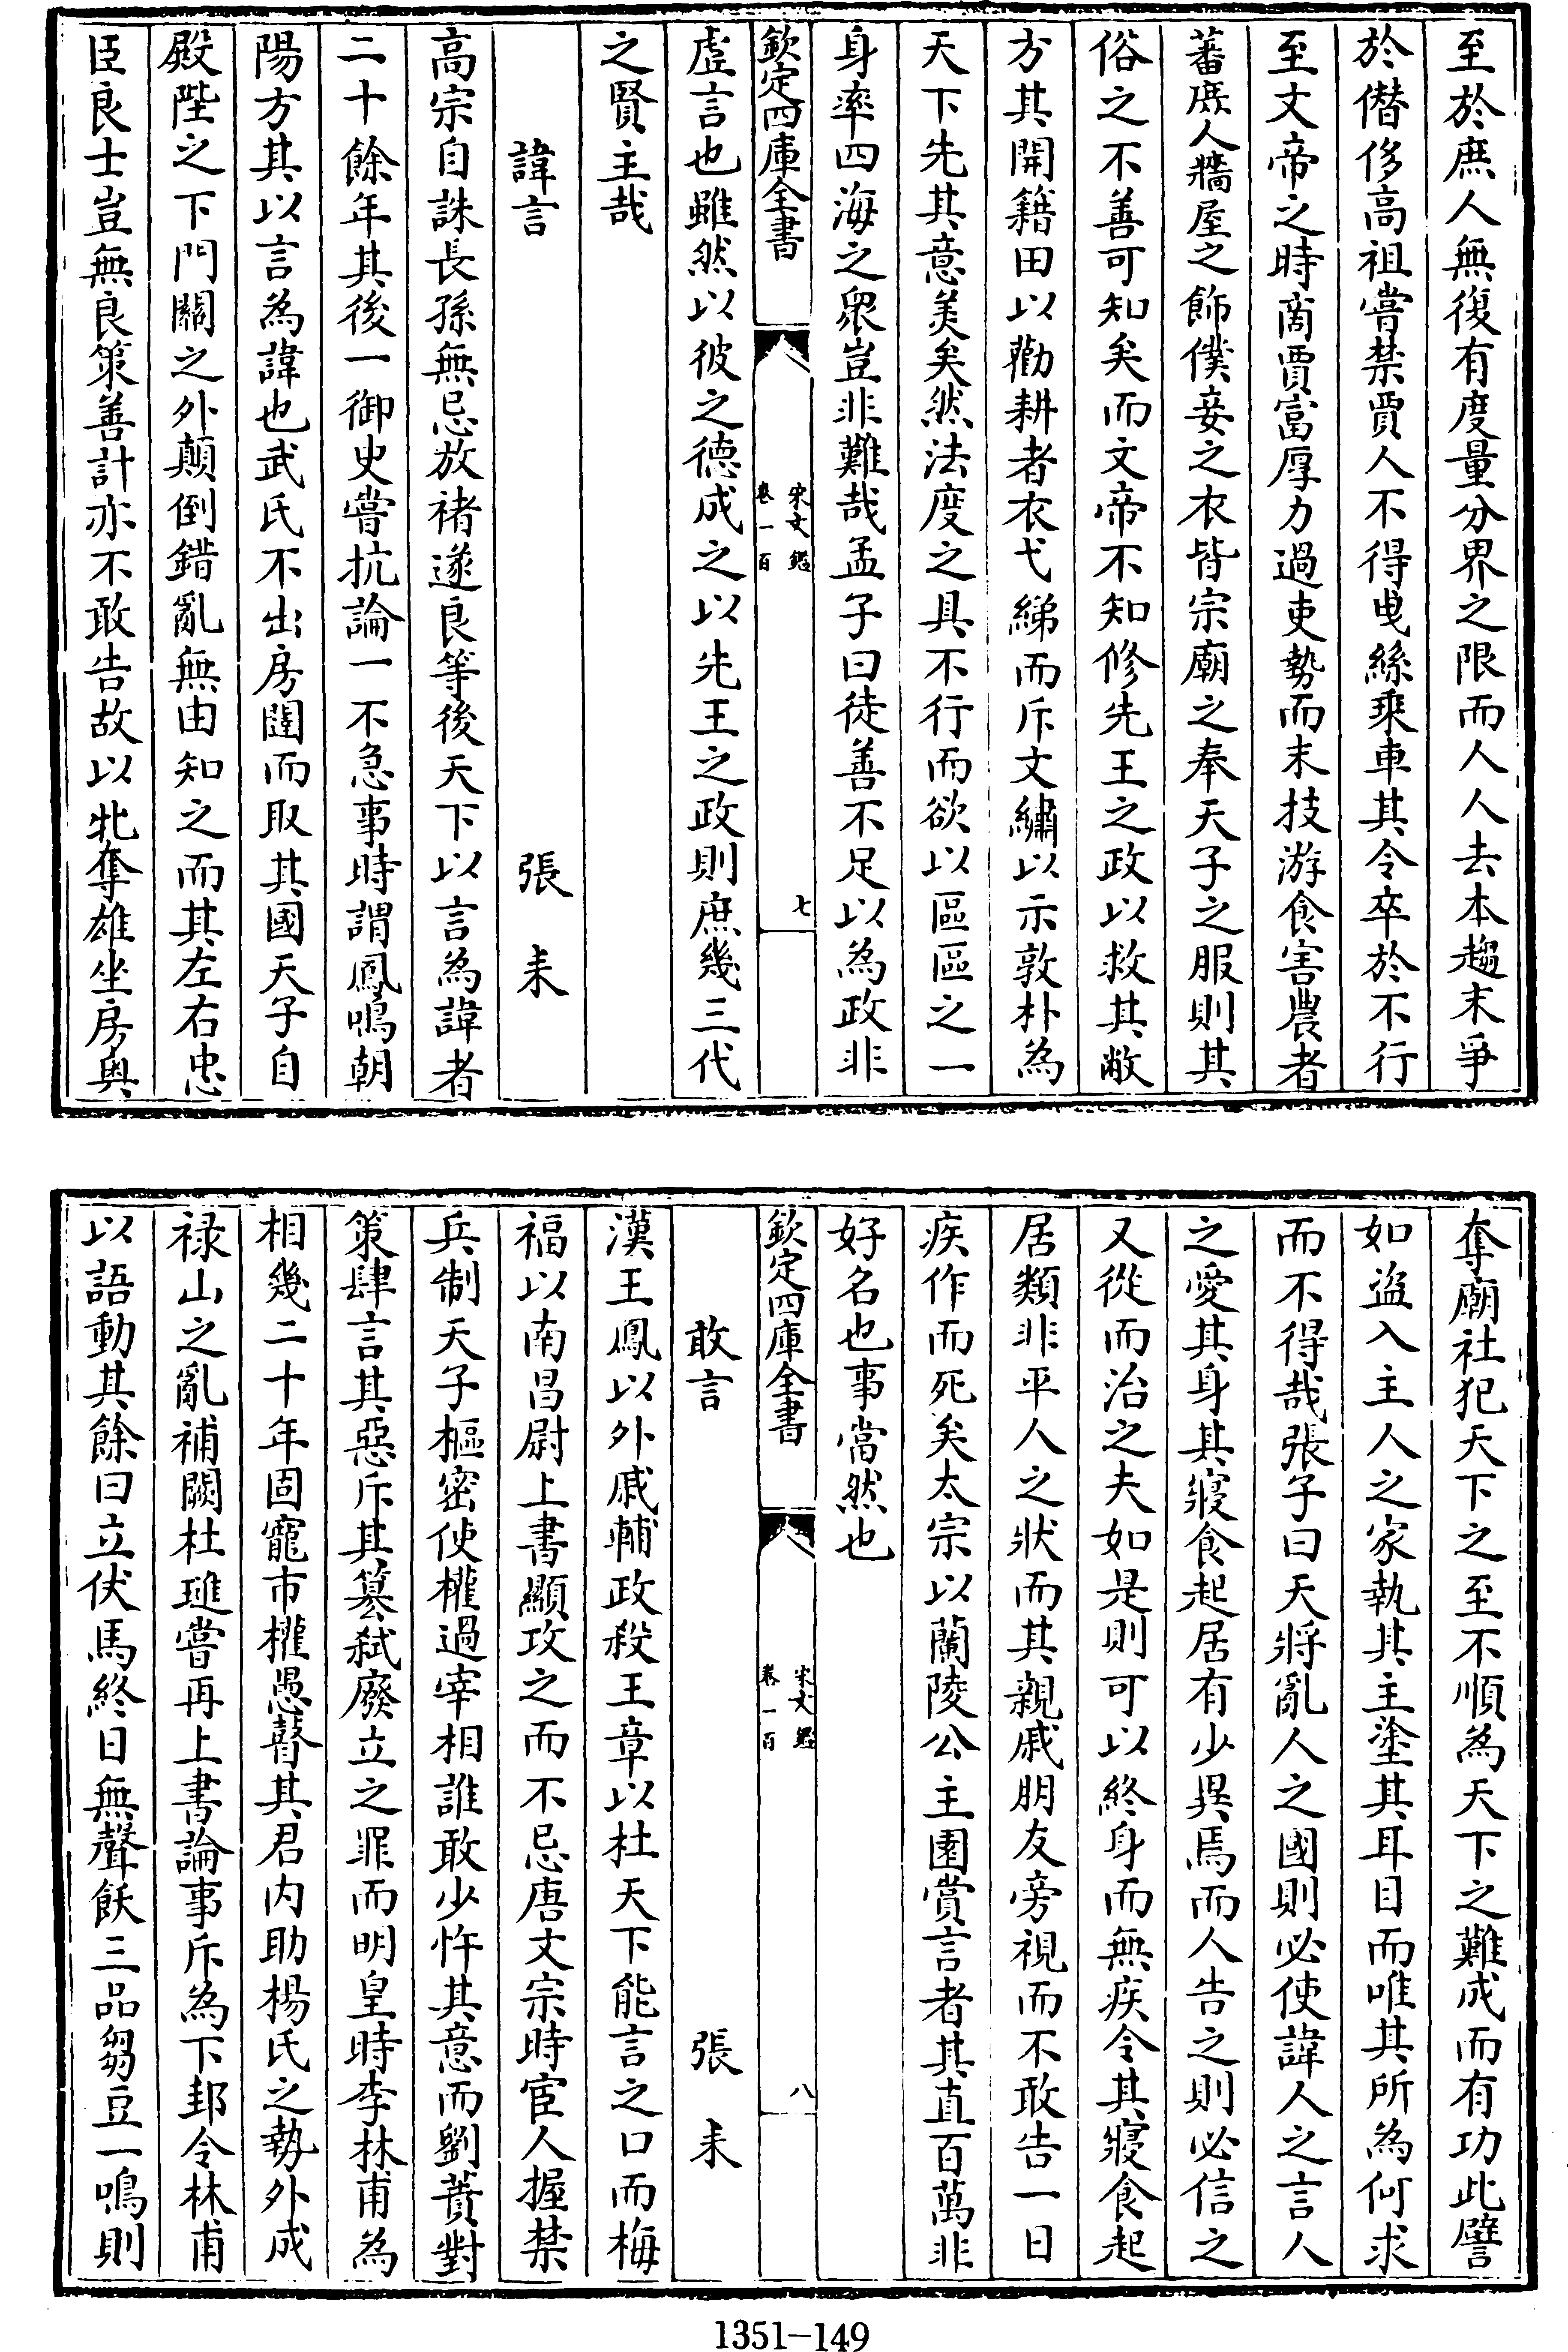 至於庶人無復有度量分界之限而人人去本趨末爭
於僣侈高祖嘗禁賈人不得曵絲乘車其令卒於不行
至文帝之時商賈富厚力過吏勢而末技游食害農者
蕃庶人牆屋之飾僕妾之衣皆宗廟之奉天子之服則其
俗之不善可知矣而文帝不知修先王之政以救其敝
方其開籍田以勸耕者衣弋綈而斥文繡以示敦朴為
天下先其意美矣然法度之具不行而欲以區區之一
身率四海之衆豈非難哉孟子曰徒善不足以為政非
欽定四庫全書
宋文鑑
卷一百
七
虛言也雖然以彼之德成之以先王之政則庶幾三代
之賢主哉
諱言
張耒
高宗自誅長孫無忌放褚遂良等後天下以言為諱者
二十餘年其後一御史嘗抗論一不急事時謂鳳鳴朝
陽方其以言為諱也武氏不出房闥而取其國天子自
殿陛之下門闗之外顛倒錯亂無由知之而其左右忠
臣良士豈無良策善計亦不敢告故以牝奪雄坐房奥
奪廟社犯天下之至不順為天下之難成而有功此譬
如盜入主人之家執其主塗其耳目而唯其所為何求
而不得哉張子曰天將亂人之國則必使諱人之言人
之愛其身其寢食起居有少異焉而人告之則必信之
又從而治之夫如是則可以終身而無疾令其寢食起
居類非平人之狀而其親戚朋友旁視而不敢告一日
疾作而死矣太宗以蘭陵公主園賞言者其直百萬非
好名也事當然也
欽定四庫全書
宋文鑑
卷一百
八
敢言
張耒
漢王鳳以外戚輔政殺王章以杜天下能言之口而梅
福以南昌尉上書顯攻之而不忌唐文宗時宦人握禁
兵制天子樞密使權過宰相誰敢少忤其意而劉蕡對
策肆言其惡斥其簒弑廢立之罪而明皇時李林甫為
相幾二十年固寵市權愚瞽其君内助楊氏之勢外成
禄山之亂補闕杜璡嘗再上書論事斥為下邽令林甫
以語動其餘曰立仗馬終日無聲飫三品芻豆一鳴則
1351-149